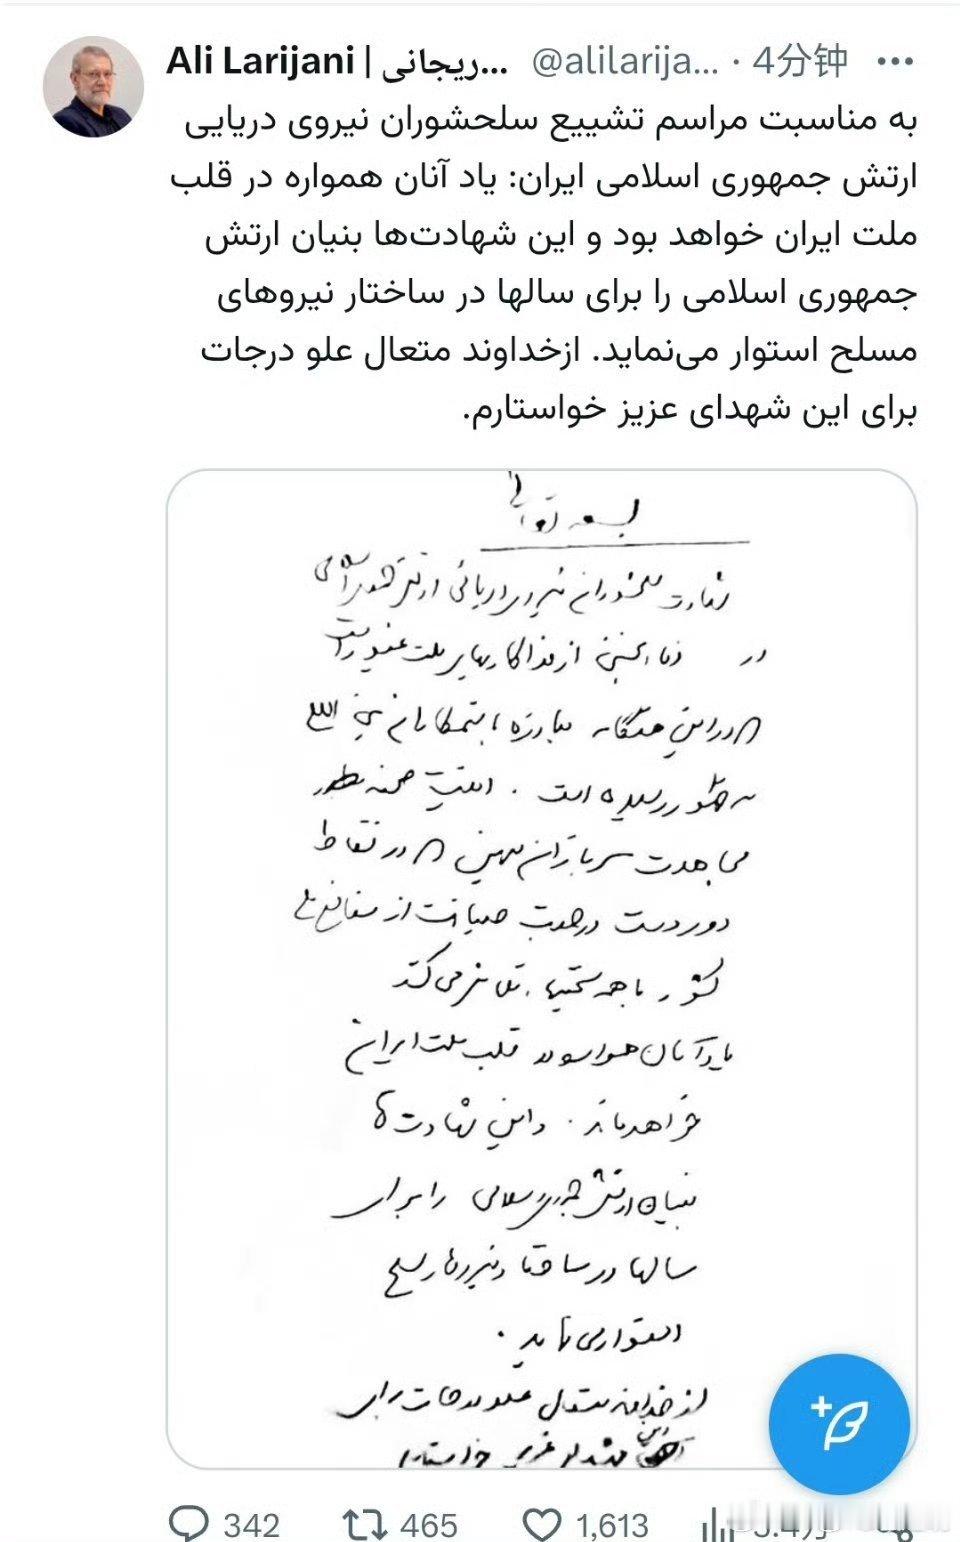 Ali Larijani | ریجانی... @alilarija... · 4分钟
به مناسبت مراسم تشییع سلحشوران نیروی دریایی
ارتش جمهوری اسلامی ایران: یاد آنان همواره در قلب
ملت ایران خواهد بود و این شهادت‌ها بنیان ارتش
جمهوری اسلامی را برای سالها در ساختار نیروهای
مسلح استوار می‌نماید. ازخداوند متعال علو درجات
برای این شهدای عزیز خواستارم.
بسمه تعالی
شهادت سلحشوران نیروی دریائی ارتش جمهوری اسلامی
در از فداکاریهای ملت
در این هنگامه مبارزه با
به ظهور رسیده است.
مجاهدت سربازان میهن که در نقاط
دوردست درجهت صیانت از منافع ملی
کشور با همه سختیها تلاش می‌کنند
یاد آنان همواره در قلب ملت ایران
خواهد ماند. و این شهادت ها
بنیان ارتش جمهوری اسلامی را برای
سالها در ساختار نیروهای مسلح
استوار می نماید.
از خداوند متعال علو درجات برای
این شهدای عزیز خواستارم
342 465 1,613